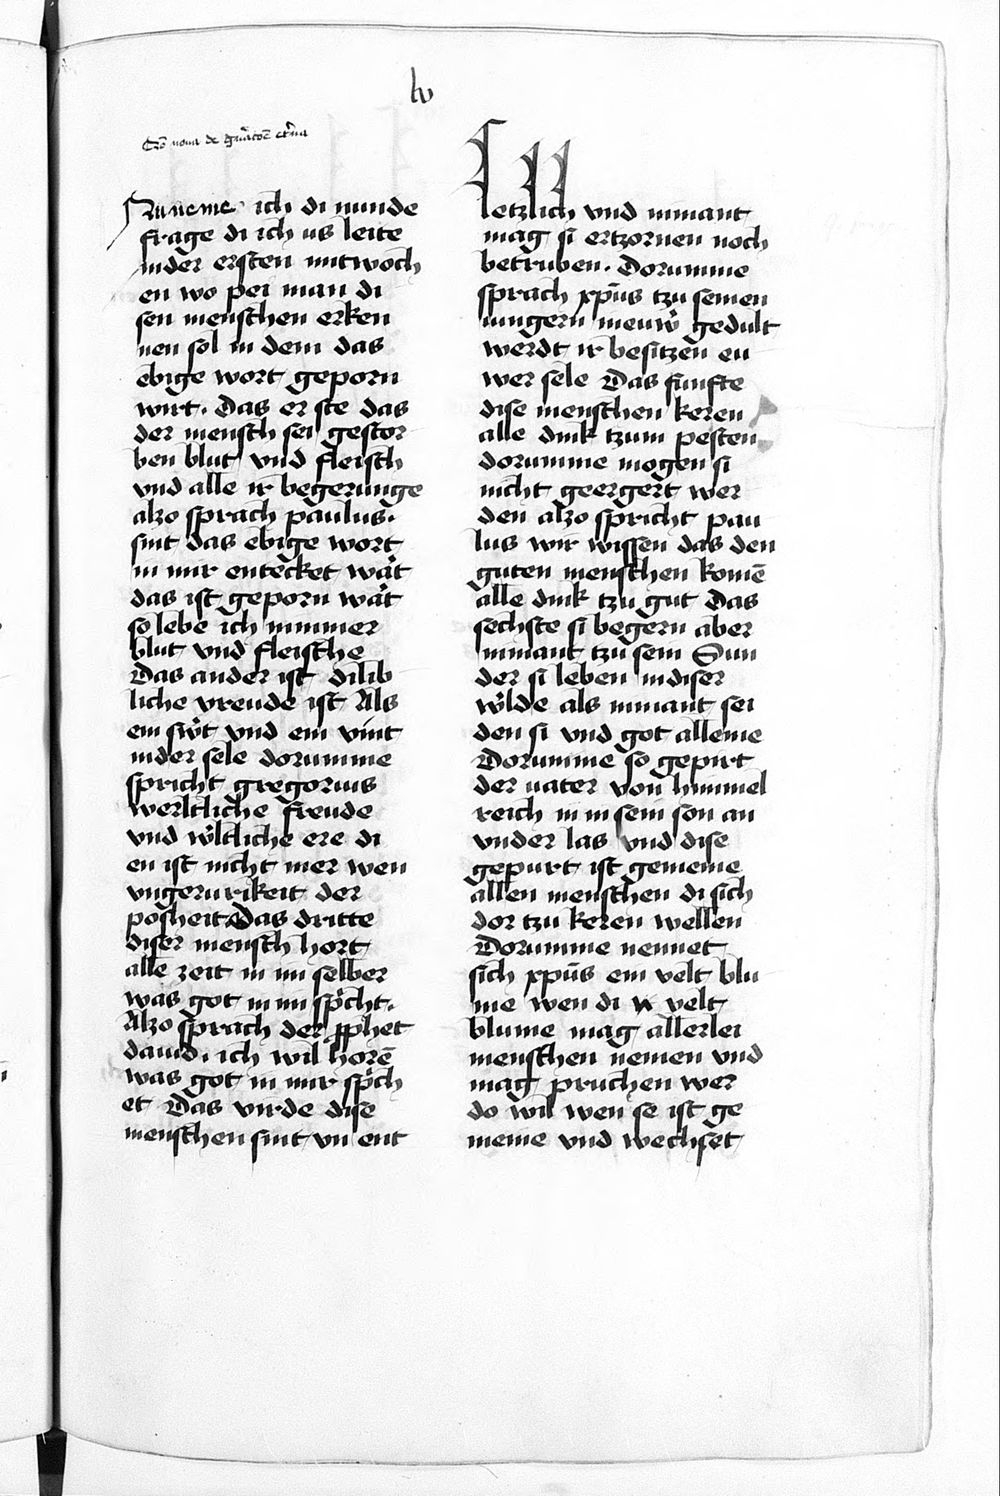 lv
nova de
ich di nunde
frage di ich us leite
inder ersten mitwoch
en wo pei man di
sen menschen erken
nen sol in dem das
ebige wort geporn
wirt. Das er ste das
der mensch sei gestor
ben blut vnd fleisch
vnd alle ir begerunge
alzo sprach paulus.
sint das ebige wort
in mir entecket wa̾t
das ist geporn wa̾t
so lebe ich nimmer
blut vnd fleische
Das ander ist di lib
liche vreude ist Als
ein sw̾t vnd ein vint
inder sele dorumme
spricht gregorius
werltliche freude
vnd w̾ltliche ere di
en ist nicht mer wen
vngerurikeit der
posheit Das dritte
diser mensch hort
alle zeit in im selber
was got in im sp̾cht.
Alzo sprach der ꝓphet
dauid. ich wil horē
was got in mir sp̾ch
et Das virde dise
menschen sint vn ent
letzlich vnd nimant
mag si ertzornen noch
betruben. Dorumme
sprach xp̄us tzu seinen
iungern inew̾ gedult
werdt ir besitzen eu
wer sele Das funfte
dise menschen keren
alle dink tzum pesten
dorumme mogen si
nicht geergert wer
den alzo spricht pau
lus wir wissen das den
guten menschen komē
alle dink tzu gut Das
sechste si begern aber
nimant tzu sein Sun
der si leben indiser
w̾lde als nimant sei
den si vnd got alleine
Dorumme so gepirt
der uater von himmel
reich in in sein son an
vnder las vnd dise
gepurt ist gemeine
allen menschen di sich
dor tzu keren wellen
Dorumme nennet
sich xp̄us ein velt blu
me wen di velt
blume mag allerlei
menschen nemen vnd
mag pruchen wer
do wil wen se ist ge
meine vnd wechset